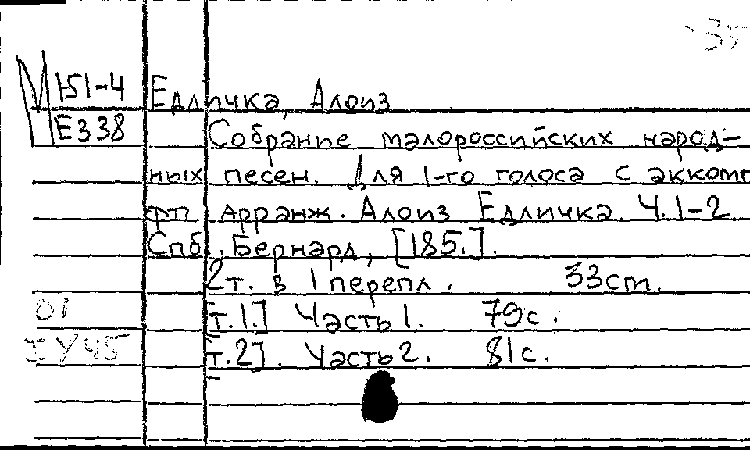 35
М 151-4 Едличка, Алоиз
Е338 Собрание малороссийских народ-
ных песен. Для 1-го голоса с акком
фп арранж. Алоиз Едличка. Ч.1-2
Спб., Бернард, [185.].
2т. в 1 перепл. 33cm.
[т.1.] Часть 1. 79с.
[т.2]. Часть 2. 81с.
01